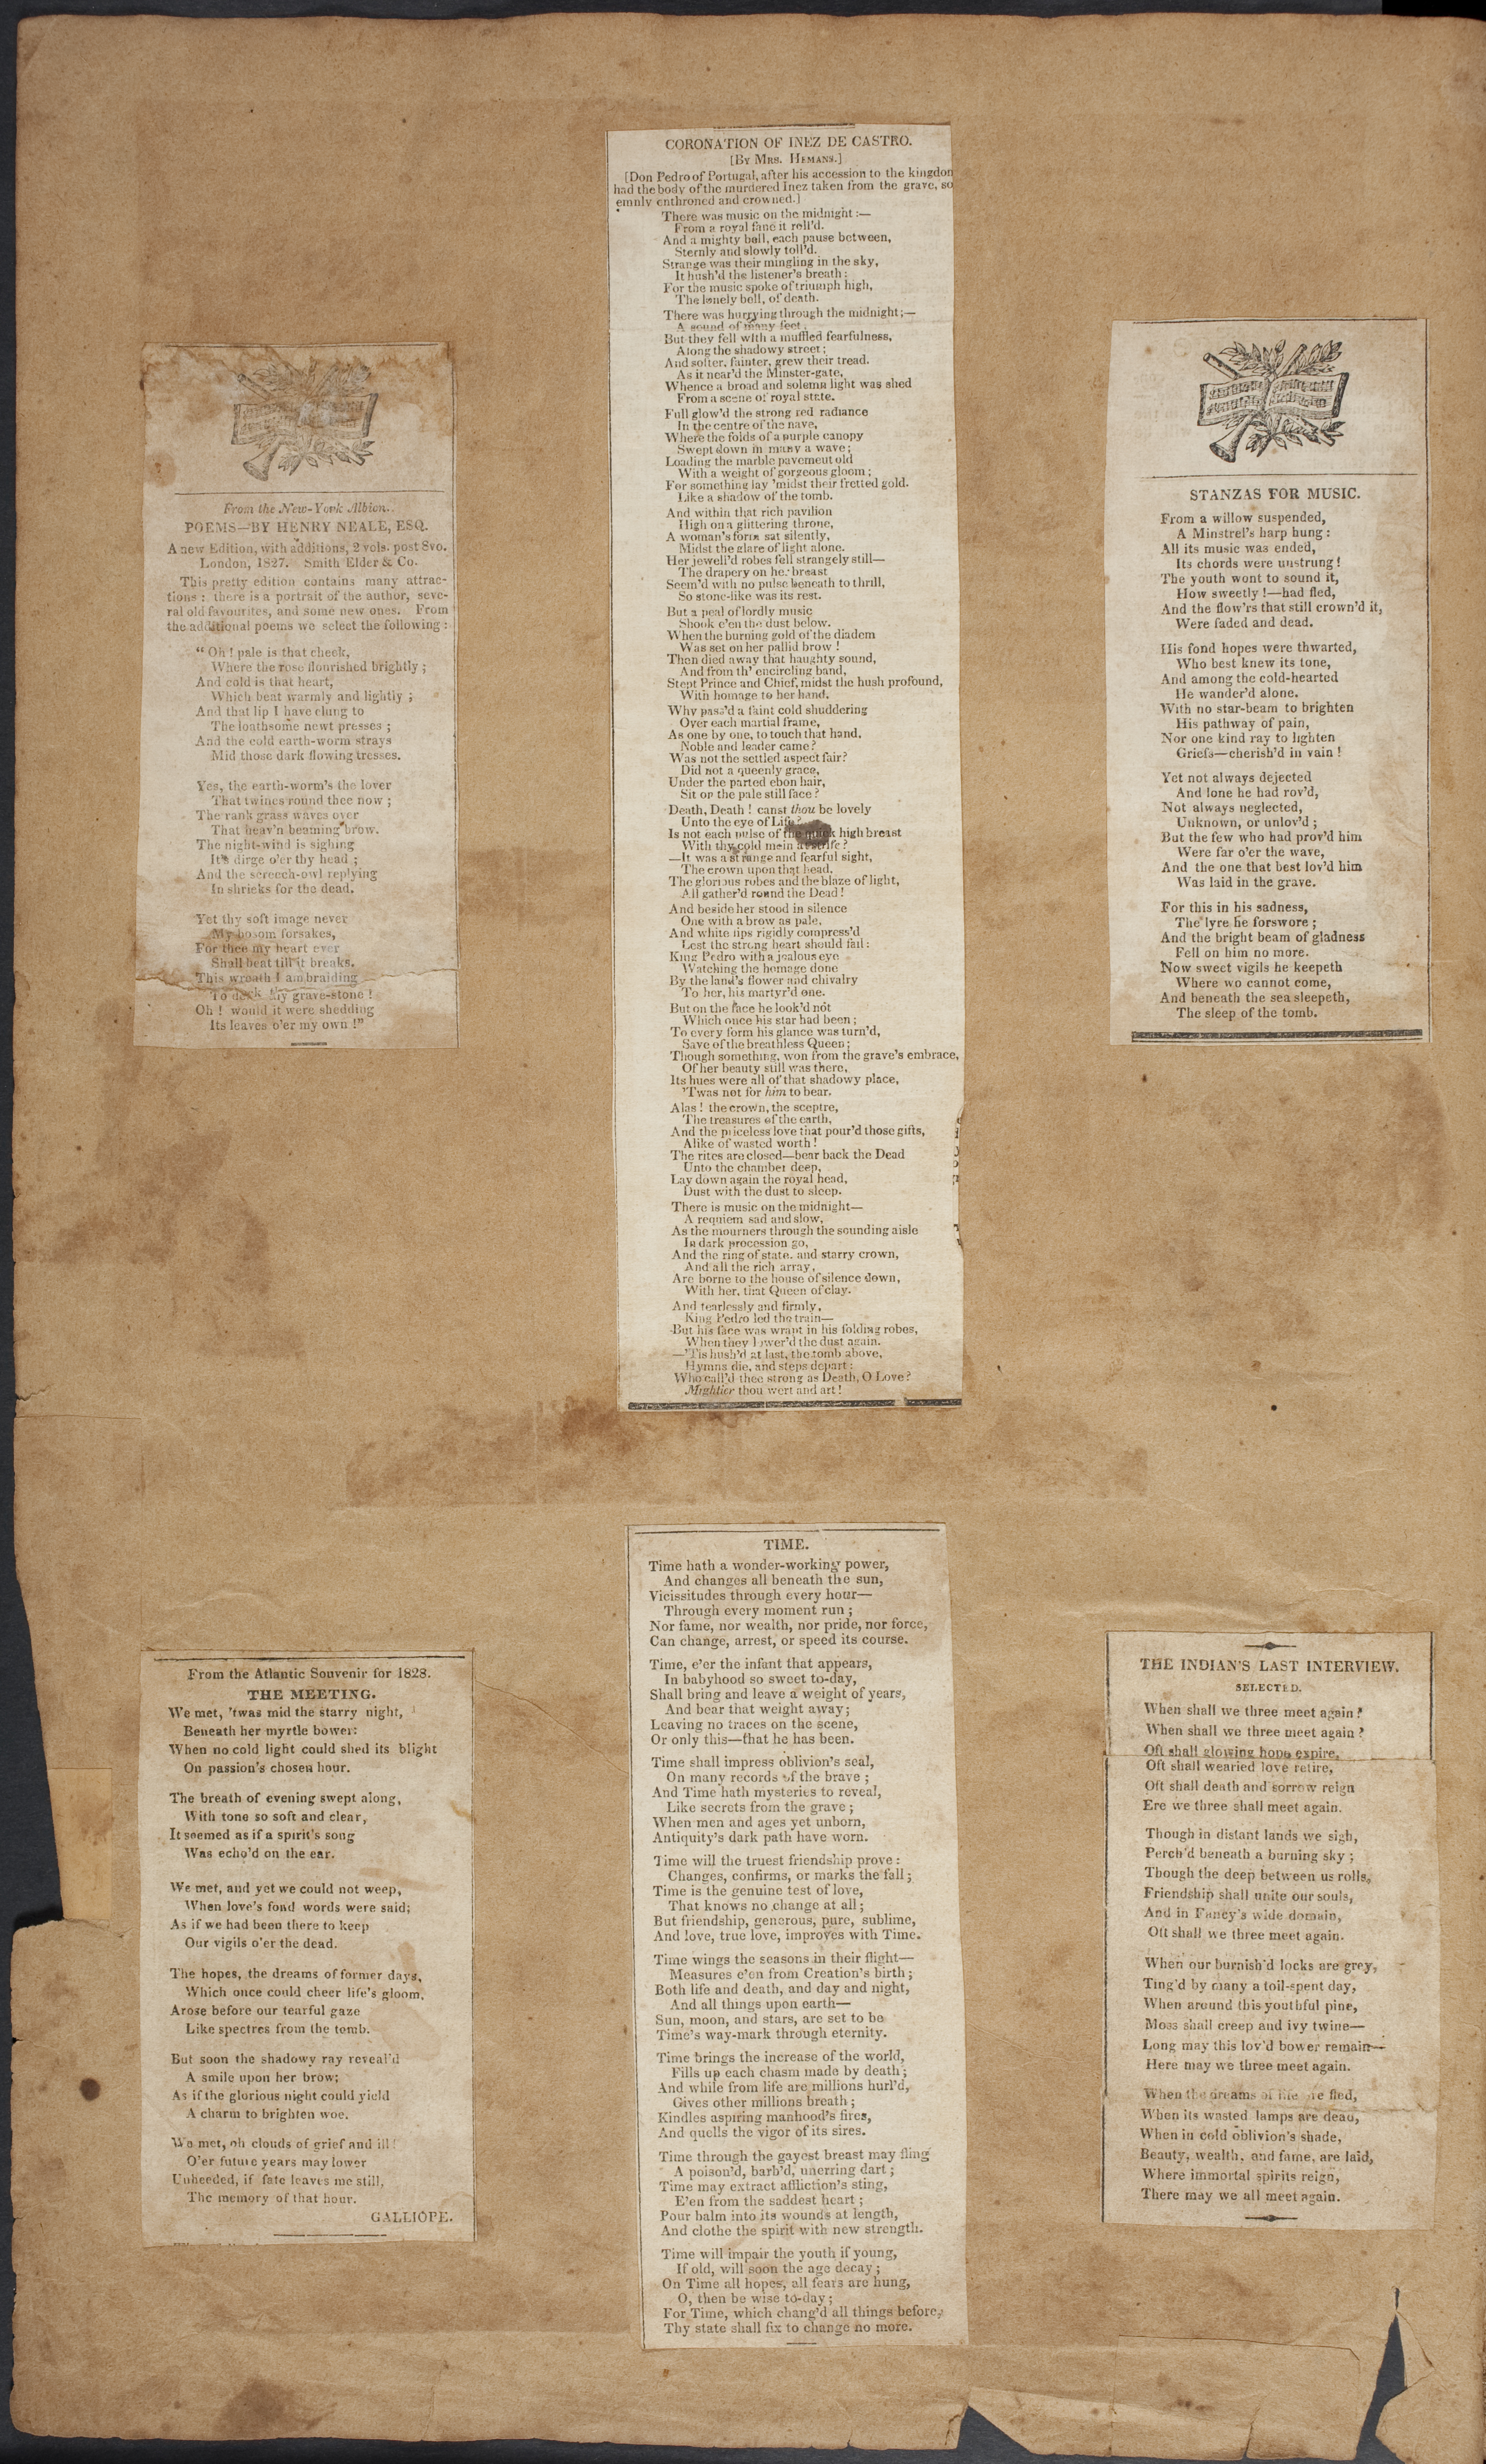 From the New-York Albion.
POEMS—BY HENRY NEALE, ESQ.
A new Edition, with additions, 2 vols. post 8vo.
London, 1827. Smith Elder & Co.
This pretty edition contains many attrac-
tions : there is a portrait of the author, seve-
ral old favourites, and some new ones. From
the additional poems we select the following :
“ Oh ! pale is that cheek,
Where the rose flourished brightly ;
And cold is that heart,
Which beat warmly and lightly ;
And that lip I have clung to
The loathsome newt presses ;
And the cold earth-worm strays
Mid those dark flowing tresses.
Yes, the earth-worm's the lover
That twines round thee now ;
The rank grass waves over
That heav'n beaming brow.
The night-wind is sighing
It's dirge o'er thy head ;
And the screech-owl replying
In shrieks for the dead.
Yet thy soft image never
My bosom forsakes,
For thee my heart ever
Shall beat till it breaks.
This wreath I am braiding
To deck thy grave-stone !
Oh ! would it were shedding
Its leaves o'er my own !”
CORONATION OF INEZ DE CASTRO.
[By Mrs. Hemans.]
[Don Pedro of Portugal, after his accession to the kingdon
had the body of the murdered Inez taken from the grave, so
emnly enthroned and crowned.]
There was music on the midnight :—
From a royal fane it roll'd.
And a mighty bell, each pause between,
Sternly and slowly toll'd.
Strange was their mingling in the sky,
It hush'd the listener's breath :
For the music spoke of triumph high,
The lonely bell, of death.
There was hurrying through the midnight ;—
A sound of many feet,
But they fell with a muffled fearfulness,
Along the shadowy street ;
And softer, fainter, grew their tread.
As it near'd the Minster-gate,
Whence a broad and solemn light was shed
From a scene of royal state.
Full glow'd the strong red radiance
In the centre of the nave,
Where the folds of a purple canopy
Swept down in many a wave ;
Loading the marble pavement old
With a weight of gorgeous gloom ;
For something lay 'midst their fretted gold.
Like a shadow of the tomb.
And within that rich pavilion
High on a glittering throne,
A woman's form sat silently,
Midst the glare of light alone.
Her jewell'd robes fell strangely still—
The drapery on her breast
Seem'd with no pulse beneath to thrill,
So stone-like was its rest.
But a peal of lordly music
Shook e'en the dust below.
When the burning gold of the diadem
Was set on her pallid brow !
Then died away that haughty sound,
And from th' encircling band,
Stept Prince and Chief, midst the hush profound,
With homage to her hand.
Why pass'd a faint cold shuddering
Over each martial frame,
As one by one, to touch that hand,
Noble and leader came ?
Was not the settled aspect fair?
Did not a queenly grace,
Under the parted ebon hair,
Sit on the pale still face ?
Death, Death ! canst thou be lovely
Unto the eye of Life ?
Is not each pulse of the quick high breast
With thy cold mein at strife ?
—It was a strange and fearful sight,
The crown upon that head.
The glorious robes and the blaze of light,
All gather'd round the Dead !
And beside her stood in silence
One with a brow as pale,
And white lips rigidly compress'd
Lest the strong heart should fail :
King Pedro with a jealous eye
Watching the homage done
By the land's flower and chivalry
To her, his martyr'd one.
But on the face he look'd not
Which once his star had been ;
To every form his glance was turn'd,
Save of the breathless Queen ;
Though something, won from the grave's embrace,
Of her beauty still was there,
Its hues were all of that shadowy place,
'Twas not for him to bear.
Alas ! the crown, the sceptre,
The treasures of the earth,
And the priceless love that pour'd those gifts,
Alike of wasted worth !
The rites are closed—bear back the Dead
Unto the chamber deep,
Lay down again the royal head,
Dust with the dust to sleep.
There is music on the midnight—
A requiem sad and slow,
As the mourners through the sounding aisle
In dark procession go,
And the ring of state, and starry crown,
And all the rich array,
Are borne to the house of silence down,
With her, that Queen of clay.
And tearlessly and firmly,
King Pedro led the train—
But his face was wrapt in his folding robes,
When they lower'd the dust again.
—'Tis hush'd at last, the tomb above,
Hymns die, and steps depart :
Who call'd thee strong as Death, O Love ?
Mightier thou wert and art !
STANZAS FOR MUSIC.
From a willow suspended,
A Minstrel's harp hung :
All its music was ended,
Its chords were unstrung !
The youth wont to sound it,
How sweetly !—had fled,
And the flow'rs that still crown'd it,
Were faded and dead.
His fond hopes were thwarted,
Who best knew its tone,
And among the cold-hearted
He wander'd alone.
With no star-beam to brighten
His pathway of pain,
Nor one kind ray to lighten
Griefs—cherish'd in vain !
Yet not always dejected
And lone he had rov'd,
Not always neglected,
Unknown, or unlov'd ;
But the few who had prov'd him
Were far o'er the wave,
And the one that best lov'd him
Was laid in the grave.
For this in his sadness,
The lyre he forswore ;
And the bright beam of gladness
Fell on him no more.
Now sweet vigils he keepeth
Where wo cannot come,
And beneath the sea sleepeth,
The sleep of the tomb.
From the Atlantic Souvenir for 1828.
THE MEETING.
We met, 'twas mid the starry night,
Beneath her myrtle bower:
When no cold light could shed its blight
On passion's chosen hour.
The breath of evening swept along,
With tone so soft and clear,
It seemed as if a spirit's song
Was echo'd on the ear.
We met, and yet we could not weep,
When love's fond words were said;
As if we had been there to keep
Our vigils o'er the dead.
The hopes, the dreams of former days,
Which once could cheer life's gloom,
Arose before our tearful gaze
Like spectres from the tomb.
But soon the shadowy ray reveal'd
A smile upon her brow;
As if the glorious night could yield
A charm to brighten woe.
We met, oh clouds of grief and ill !
O'er future years may lower
Unheeded, if fate leaves me still,
The memory of that hour.
GALLIOPE.
TIME.
Time hath a wonder-working power,
And changes all beneath the sun,
Vicissitudes through every hour—
Through every moment run ;
Nor fame, nor wealth, nor pride, nor force,
Can change, arrest, or speed its course.
Time, e'er the infant that appears,
In babyhood so sweet to-day,
Shall bring and leave a weight of years,
And bear that weight away;
Leaving no traces on the scene,
Or only this—that he has been.
Time shall impress oblivion's seal,
On many records of the brave ;
And Time hath mysteries to reveal,
Like secrets from the grave ;
When men and ages yet unborn,
Antiquity's dark path have worn.
Time will the truest friendship prove :
Changes, confirms, or marks the fall ;
Time is the genuine test of love,
That knows no change at all ;
But friendship, generous, pure, sublime,
And love, true love, improves with Time.
Time wings the seasons in their flight—
Measures e'en from Creation's birth ;
Both life and death, and day and night,
And all things upon earth—
Sun, moon, and stars, are set to be
Time's way-mark through eternity.
Time brings the increase of the world,
Fills up each chasm made by death ;
And while from life are millions hurl'd,
Gives other millions breath ;
Kindles aspiring manhood's fires,
And quells the vigor of its sires.
Time through the gayest breast may fling
A poison'd, barb'd, unerring dart ;
Time may extract affliction's sting,
E'en from the saddest heart ;
Pour balm into its wounds at length,
And clothe the spirit with new strength.
Time will impair the youth if young,
If old, will soon the age decay ;
On Time all hopes, all fears are hung,
O, then be wise to-day ;
For Time, which chang'd all things before,
Thy state shall fix to change no more.
THE INDIAN'S LAST INTERVIEW.
SELECTED.
When shall we three meet again?
When shall we three meet again ?
Oft shall glowing hope expire,
Oft shall wearied love retire,
Oft shall death and sorrow reign
Ere we three shall meet again.
Though in distant lands we sigh,
Perch'd beneath a burning sky ;
Though the deep between us rolls,
Friendship shall unite our souls,
And in Fancy's wide domain,
Oft shall we three meet again.
When our burnish'd locks are grey,
Ting'd by many a toil-spent day,
When around this youthful pine,
Moss shall creep and ivy twine—
Long may this lov'd bower remain—
Here may we three meet again.
When the dreams of life are fled,
When its wasted lamps are dead,
When in cold oblivion's shade,
Beauty, wealth, and fame, are laid,
Where immortal spirits reign,
There may we all meet again.